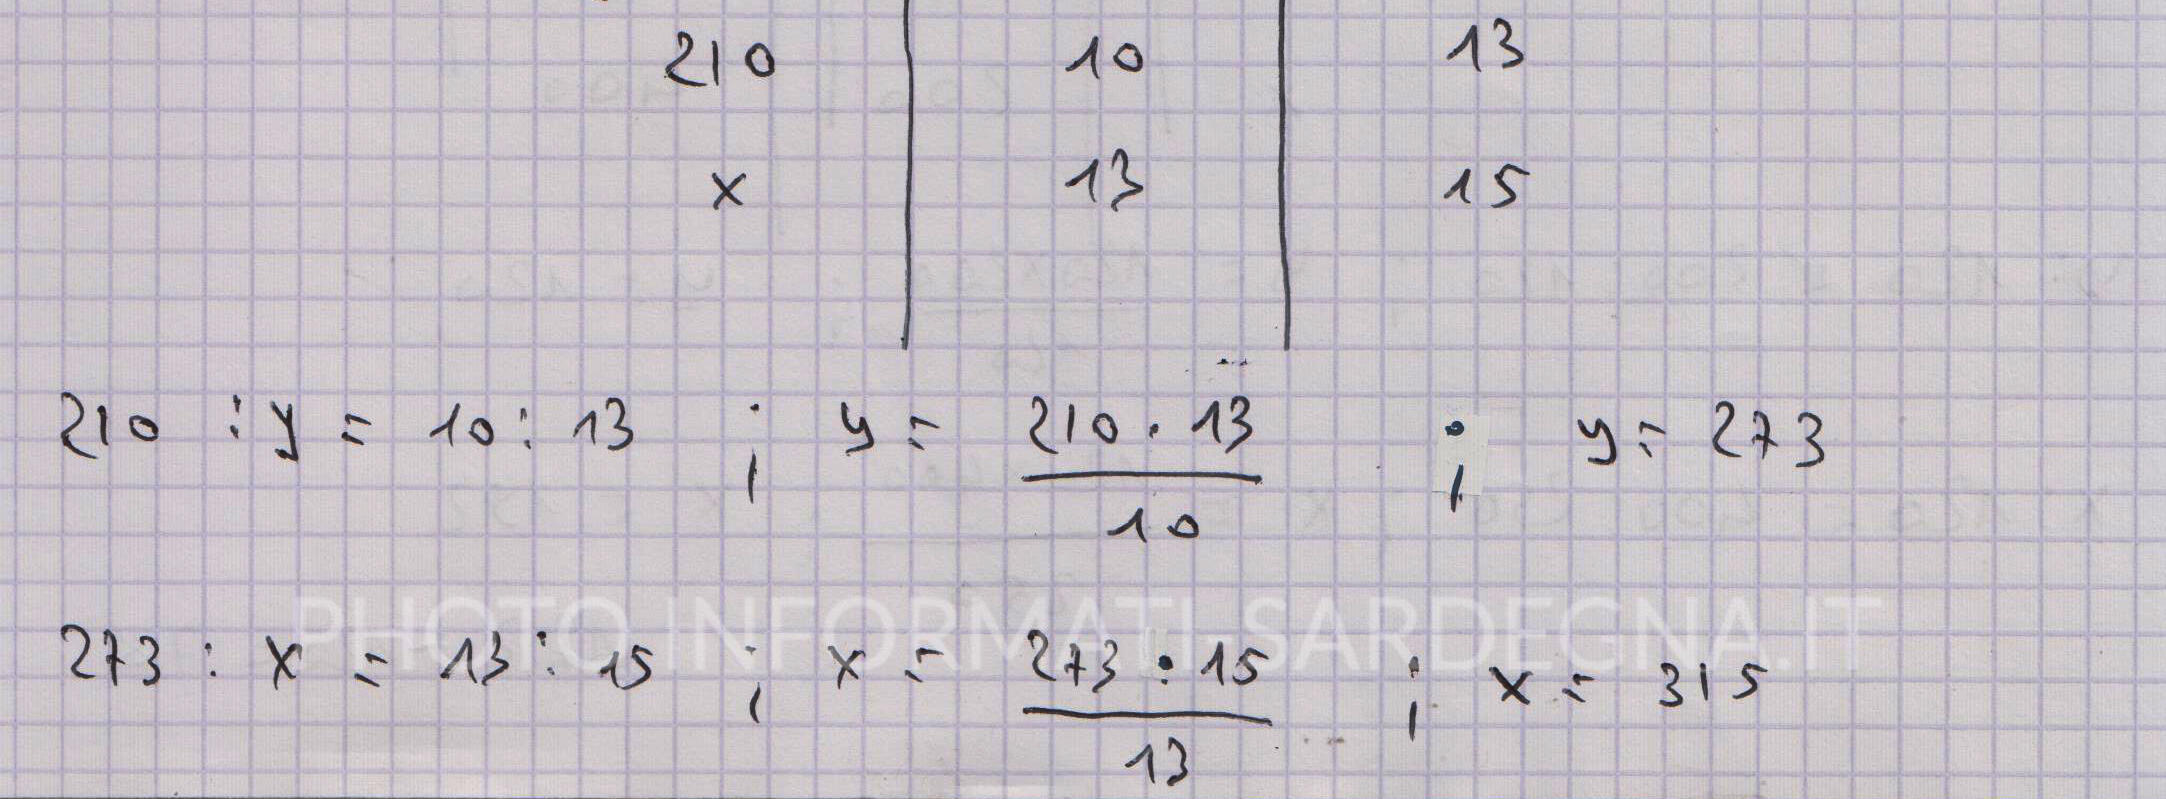 210 | 10 | 13
x | 13 | 15
210 : y = 10 : 13 ; y = 210 · 13 / 10 ; y = 273
PHOTO INFORMATI SARDEGNA.IT
273 : x = 13 : 15 ; x = 273 · 15 / 13 ; x = 315